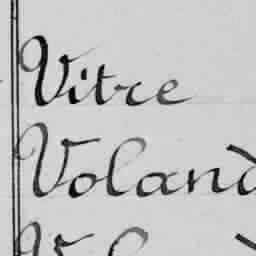 Vitre
Voland